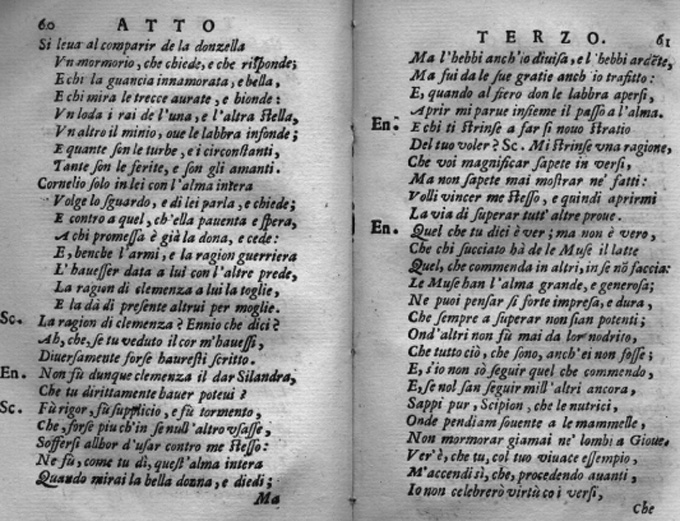 60 ATTO
Si leua al comparir de la donzella
Vn mormorio, che chiede, e che risponde;
E chi la guancia innamorata, e bella,
E chi mira le trecce aurate, e bionde:
Vn loda i rai de l'una, e l'altra stella,
Vn altro il minio, oue le labbra infonde;
E quante son le turbe, e i circonstanti,
Tante son le ferite, e son gli amanti.
Cornelio solo in lei con l'alma intera
Volge lo sguardo, e di lei parla, e chiede;
E contro a quel, ch'ella pauenta e spera,
A chi promessa è già la dona, e cede:
E, benche l'armi, e la ragion guerriera
L'hauesser data a lui con l'altre prede,
La ragion di clemenza a lui la toglie,
E la dà di presente altrui per moglie.
Sc. La ragion di clemenza? Ennio che dici?
Ah, che, se tu veduto il cor m'hauessi,
Diuersamente forse hauresti scritto.
En. Non fù dunque clemenza il dar Silandra,
Che tu dirittamente hauer poteui?
Sc. Fù rigor, fù supplicio, e fù tormento,
Che, forse piu ch'in se null'altro vsasse,
Soffersi allhor d'usar contro me stesso:
Ne fù, come tu dì, quest'alma intera
Quando mirai la bella donna, e diedi;
Ma
TERZO. 61
Ma l'hebbi anch'io diuisa, e l'hebbi ardēte,
Ma fui da le sue gratie anch io trafitto:
E, quando al fiero don le labbra apersi,
Aprir mi parue insieme il passo a l'alma.
En. E chi ti strinse a far sì nouo stratio
Del tuo voler? Sc. Mi strinse vna ragione,
Che voi magnificar sapete in versi,
Ma non sapete mai mostrar ne' fatti:
Volli vincer me stesso, e quindi aprirmi
La via di superar tutt' altre proue.
En. Quel che tu dici è ver; ma non è vero,
Che chi succiato hà de le Muse il latte
Quel, che commenda in altri, in se nō faccia:
Le Muse han l'alma grande, e generosa;
Ne puoi pensar sì forte impresa, e dura,
Che sempre a superar non sian potenti;
Ond'altri non fù mai da lor nodrito,
Che tutto ciò, che sono, anch'ei non fosse;
E, s'io non sò seguir quel che commendo,
E, se nol san seguir mill'altri ancora,
Sappi pur, Scipion, che le nutrici,
Onde pendiam souente a le mammelle,
Non mormorar giamai ne' lombi a Gioue.
Ver'è, che tu, col tuo viuace essempio,
M'accendi sì, che, procedendo auanti,
Io non celebrerò virtù co i versi,
Che